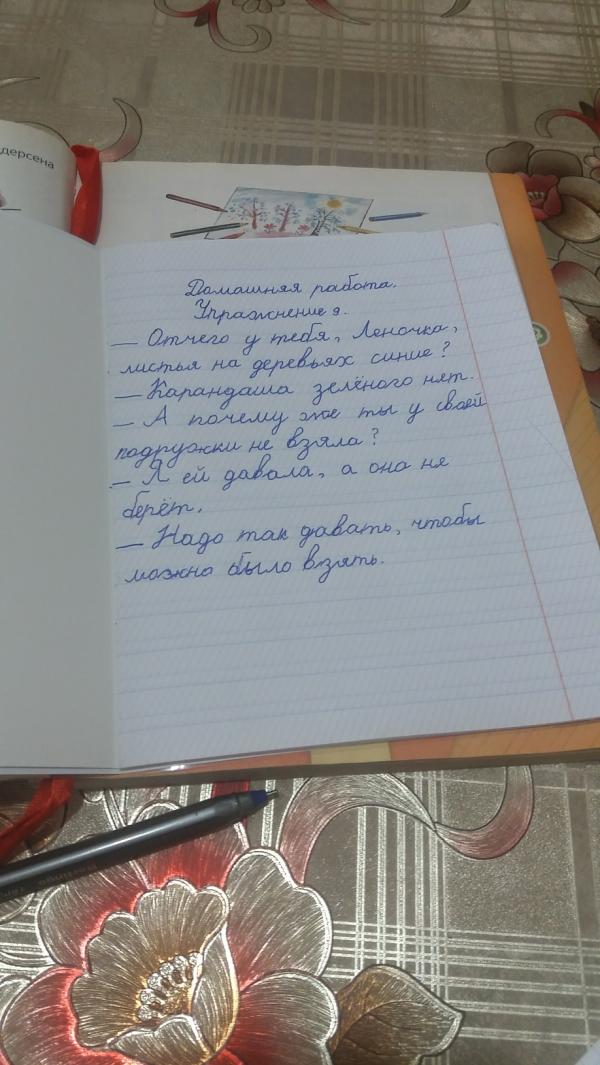 дерсена
Домашняя работа.
Упражнение 9.
— Отчего у тебя, Леночка,
листья на деревьях синие?
— Карандаша зелёного нет.
— А почему же ты у своей
подружки не взяла?
— Я ей давала, а она не
берёт.
— Надо так давать, чтобы
можно было взять.